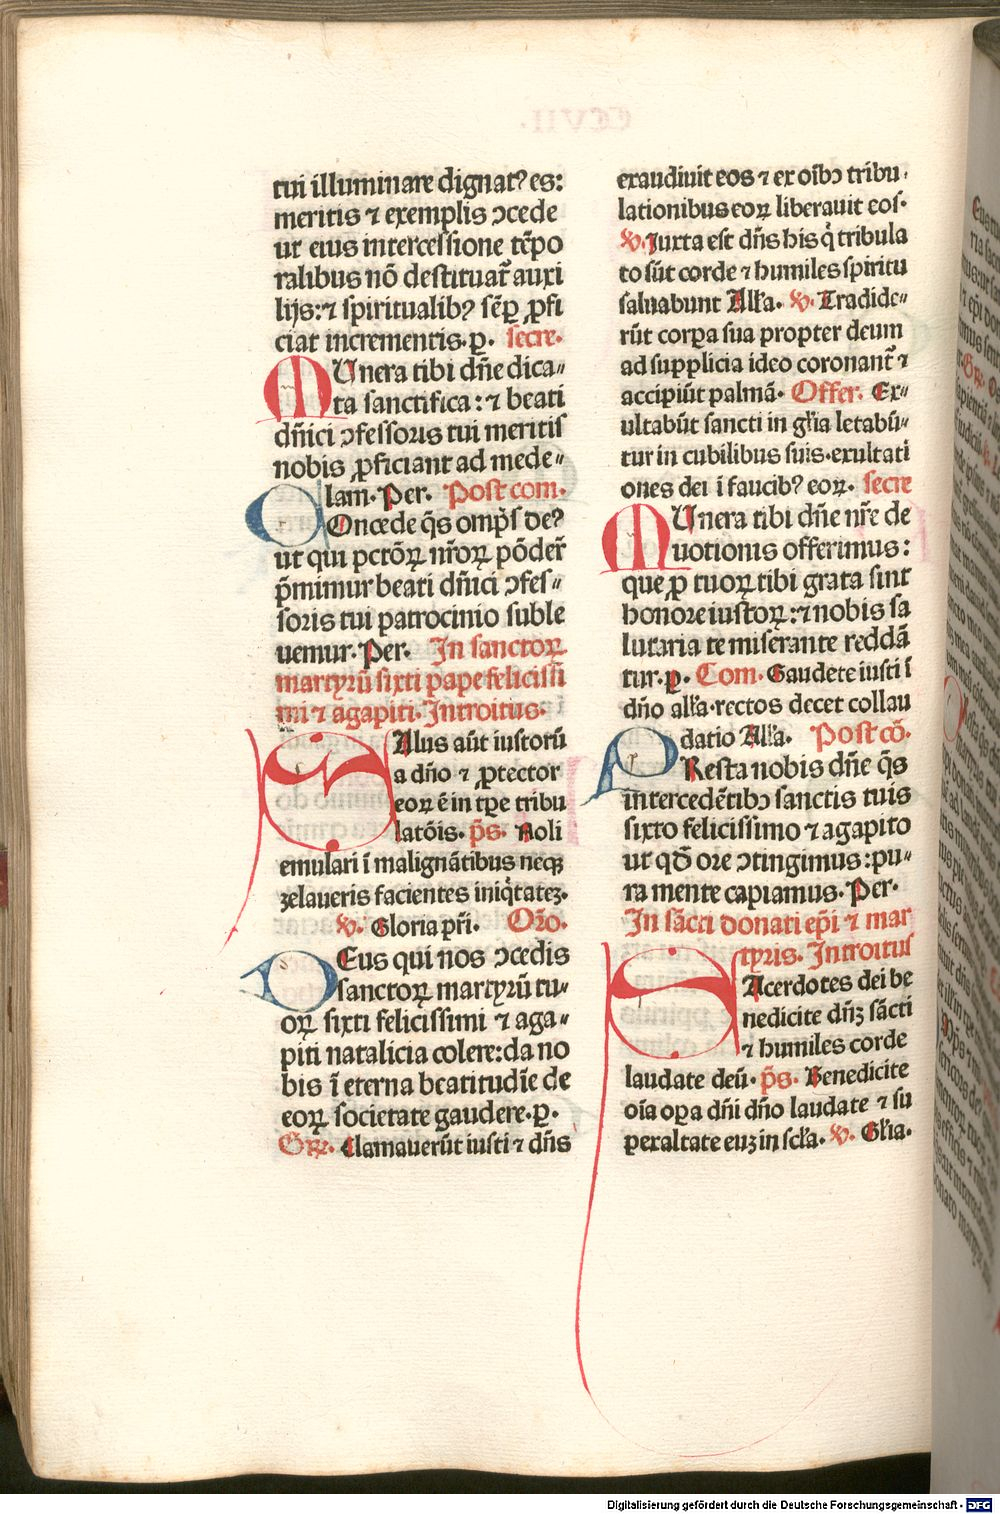 tui illuminare dignatꝰ es:
meritis ⁊ exemplis ɔcede
ut eius intercessione tēpo
ralibus nō destituat᷑ auxi
lijs: ⁊ spiritualibꝰ sēꝑ ꝓfi
ciat incrementis. p. secre.
MUnera tibi dn̄e dica⸗
ta sanctifica: ⁊ beati
dn̄ici ɔfessoris tui meritis
nobis ꝓficiant ad mede⸗
lam. Per. Post com.
COncede q̄s omp̄s deꝰ
ut qui pctōꝝ nr̄oꝝ pōder̄
p̄mimur beati dn̄ici ɔfes⸗
soris tui patrocinio suble
uemur. Per. In sanctoꝝ
martyrū sixti pape felicissi
mi ⁊ agapiti. Introitus.
SAlus aūt iustorū
a dn̄o ⁊ ꝓtector
eoꝝ ē in tp̄e tribu
latōis. p̄s. Noli
emulari ī malignātibus neqꝫ
zelaueris facientes iniq̇tateꝫ.
℣. Gloria pr̄i. Or̄o.
DEus qui nos ɔcedis
sanctoꝝ martyrū tu⸗
oꝝ sixti felicissimi ⁊ aga⸗
piti natalicia colere: da no
bis ī eterna beatitudīe de
eoꝝ societate gaudere. p.
Grꝝ. Clamauerūt iusti ⁊ dn̄s
exaudiuit eos ⁊ ex oībɔ tribu⸗
lationibus eoꝝ liberauit eos.
℣. Iuxta est dn̄s his q̇ tribula
to sūt corde ⁊ humiles spiritu
saluabunt All'a. ℣. Tradide⸗
rūt corpa sua propter deum
ad supplicia ideo coronant᷑ ⁊
accipiūt palmā. Offer. Ex⸗
ultabūt sancti in gl'ia letabū⸗
tur in cubilibus suis. exultati
ones dei ī faucibꝰ eoꝝ. secre
MUnera tibi dn̄e nr̄e de
uotionis offerimus:
que ꝓ tuoꝝ tibi grata sint
honore iustoꝝ: ⁊ nobis sa
lutaria te miserante reddā
tur. p. Com. Gaudete iusti ī
dn̄o all'a. rectos decet collau
datio All'a. Post cō.
PResta nobis dn̄e q̄s
intercedētibɔ sanctis tuis
sixto felicissimo ⁊ agapito
ut qd̄ ore ɔtingimus: pu⸗
ra mente capiamus. Per.
In sāct̄i donati ep̄i ⁊ mar
tyris. Introitus
SAcerdotes dei be
nedicite dn̄ꝫ sācti
⁊ humiles corde
laudate deū. p̄s. Benedicite
oīa oꝑa dn̄i dn̄o laudate ⁊ su
peraltate euꝫ in scl'a. ℣. Gl'ia.
Digitalisierung gefördert durch die Deutsche Forschungsgemeinschaft - DFG